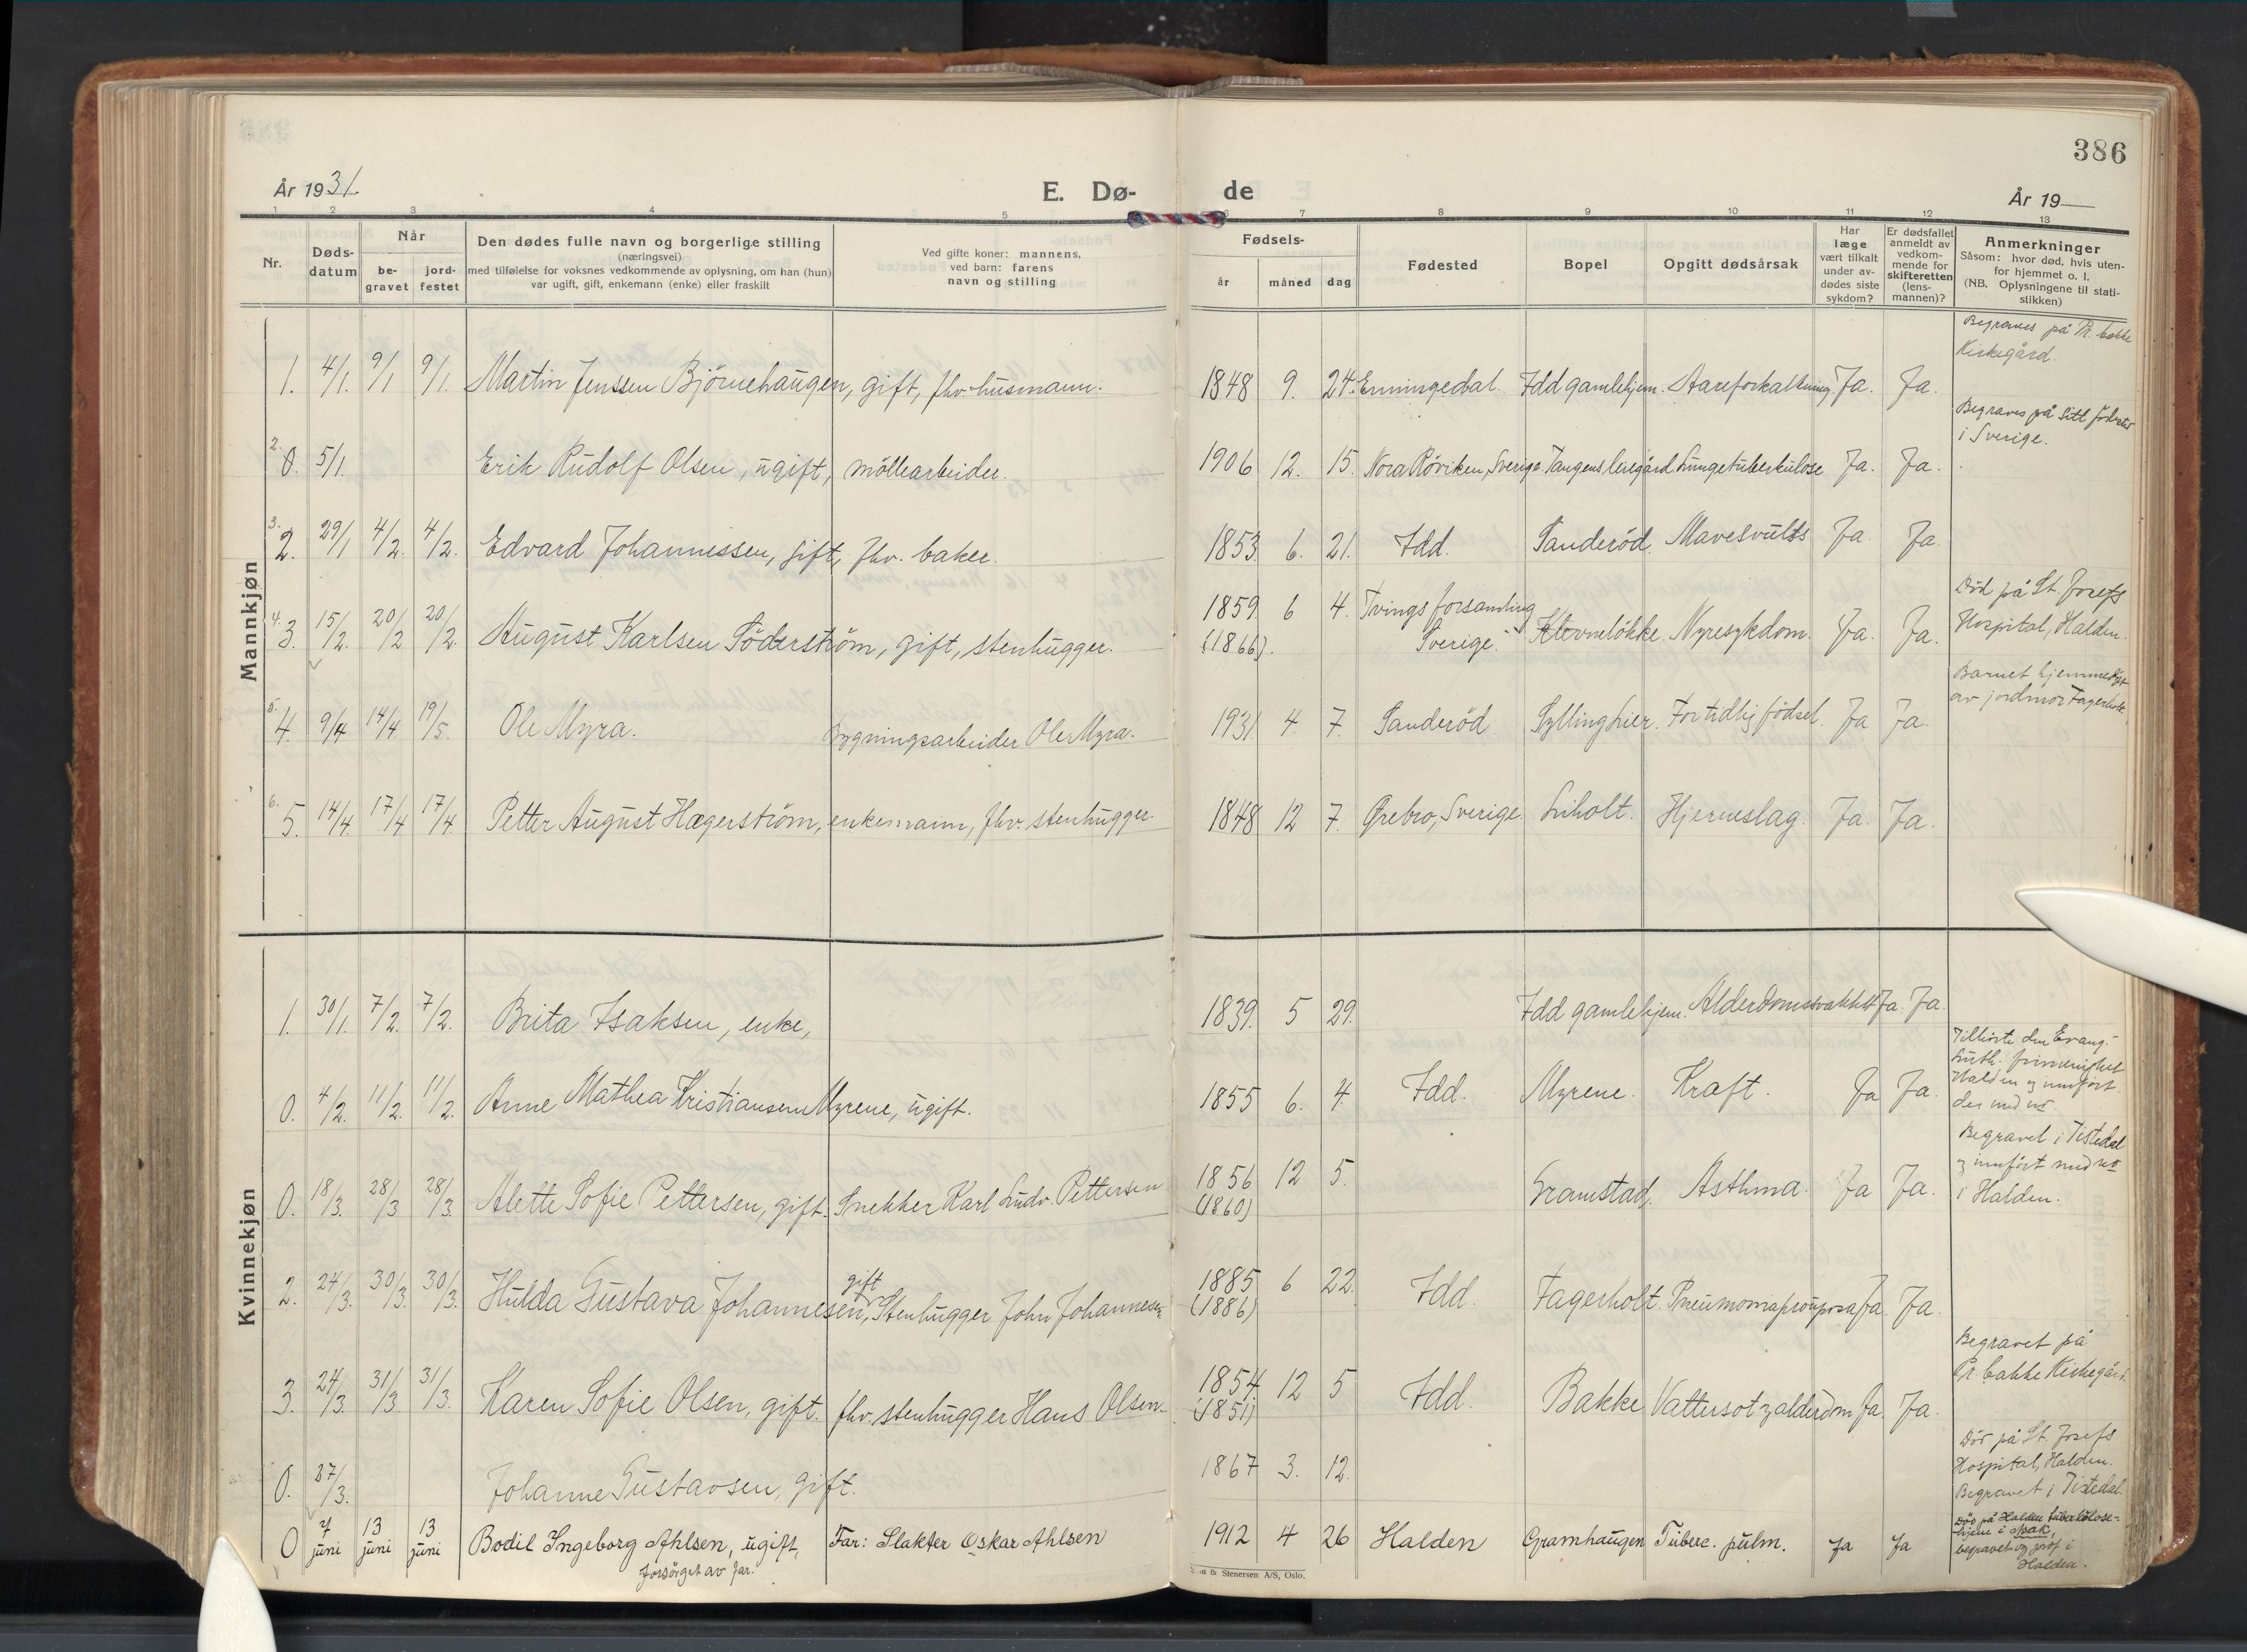 386
År 1931
E. Dø-
de
År 19
1 2 3 4 5 6 7 8 9 10 11 12 13
Nr.
Døds-
datum
Når
be-
gravet
jord-
festet
Den dødes fulle navn og borgerlige stilling
(næringsvei)
med tilføielse for voksnes vedkommende av oplysning, om han (hun)
var ugift, gift, enkemann (enke) eller fraskilt
Ved gifte koner: mannens,
ved barn: farens
navn og stilling
Fødsels-
år måned dag
Fødested
Bopel
Opgitt dødsårsak
Har
læge
vært tilkalt
under av-
dødes siste
sykdom?
Er dødsfallet
anmeldt av
vedkom-
mende for
skifteretten
(lens-
mannen)?
Anmerkninger
Såsom: hvor død, hvis uten-
for hjemmet o. l.
(NB. Oplysningene til stati-
stikken)
Mannkjøn
Begraves på Pr. bakke
Kirkegård.
1. 4/1. 9/1 9/1. Martin Jenssen Björnehaugen, gift, fhv. husmann. 1848 9. 24. Enningedal. Idd gamlehjem. Aareforkalkning Ja. Ja.
Begraves på sitt födested
i Sverige.
2. 0. 5/1. Erik Rudolf Olsen, ugift, möllearbeider. 1906 12. 15. Nora Röviken, Sverige. Tangens leiegård. Lungetuberkulose Ja. Ja.
3. 2. 29/1 4/2. 4/2. Edvard Johannessen, gift, fhv. baker. 1853 6. 21. Idd. Sanderöd. Mavesvulst Ja Ja.
4. 3. 15/2. 20/2 20/2. August Karlsen Söderström, gift, stenhugger. 1859 6 4. Tvings forsamling
(1866). Sverige. Klevneløkke. Nyresykdom. Ja. Ja.
Död på St. Josefs
Hospital, Halden.
5. 4. 9/4 14/4 19/5. Ole Myra. Bygningsarbeider Ole Myra. 1931. 4. 7. Sanderöd Syllinglier. For tidlig födsel. Ja Ja.
Barnet hjemmedöpt
av jordmor Fagerholt.
6. 5. 14/4 17/4 17/4 Petter August Hægerström, enkemann, fhv. stenhugger. 1848 12 7. Ørebro, Sverige. Liholt. Hjerneslag. Ja. Ja.
Kvinnekjøn
1. 30/1. 7/2. 7/2. Brita Isaksen, enke, 1839. 5 29. Idd gamlehjem. Alderdomssvakhet Ja. Ja.
0. 4/2. 11/2. 11/2. Anne Mathea Kristiansen Myrene, ugift. 1855 6. 4. Idd. Myrene. Kraft. Ja Ja.
Tilhörte den Evang.-
Luth. frimenighet
Halden og innfört
der med nr.
0. 18/3. 28/3 28/3. Alette Sofie Pettersen, gift. Snekker Karl Ludv. Pettersen 1856 12 5.
(1860) Gramstad. Asthma. Ja Ja.
Begravet i Tistedal
og innfört med nr
i Halden.
2. 24/3. 30/3. 30/3. Hulda Gustava Johannesen, gift Stenhugger John Johannesen 1885 6 22.
(1886) Idd. Fagerholt. Ja. Ja.
3. 24/3. 31/3 31/3. Karen Sofie Olsen, gift. fhv. stenhugger Hans Olsen. 1854. 12 5
(1851) Idd. Bakke Vattersot og alderdom Ja. Ja.
Begravet på
Pr. bakke Kirkegård.
0. 27/3. Johanne Gustavsen, gift. 1867 3. 12.
Dör på St. Josefs
Hospital, Halden.
Begravet i Tistedal.
0 7 juni 13 juni 13 juni Bodil Ingeborg Ahlsen, ugift, Far: Slakter Oskar Ahlsen 1912 4 26 Halden Gramhaugen Tuberc. pulm. Ja Ja
forsörget av far.
Död på Halden tuberkulose-
hjem i Asak,
begravet og jordf. i
Halden.
& Stenersen A/S, Oslo.